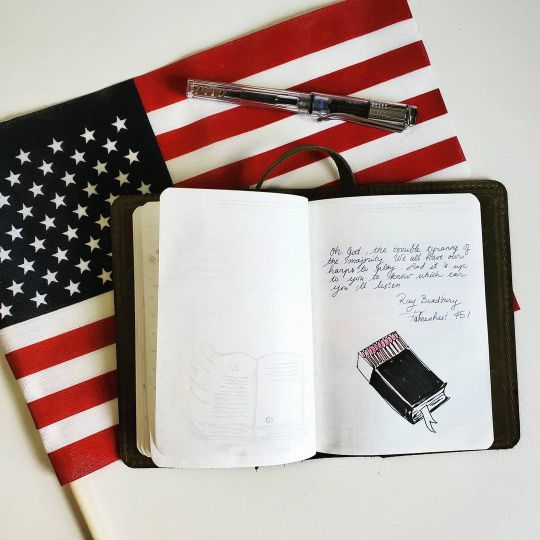 Oh God, the terrible tyranny of
the majority. We all have our
harps to play. And it is up
to you to know which ear
you'll listen
Ray Bradbury
Fahrenheit 451